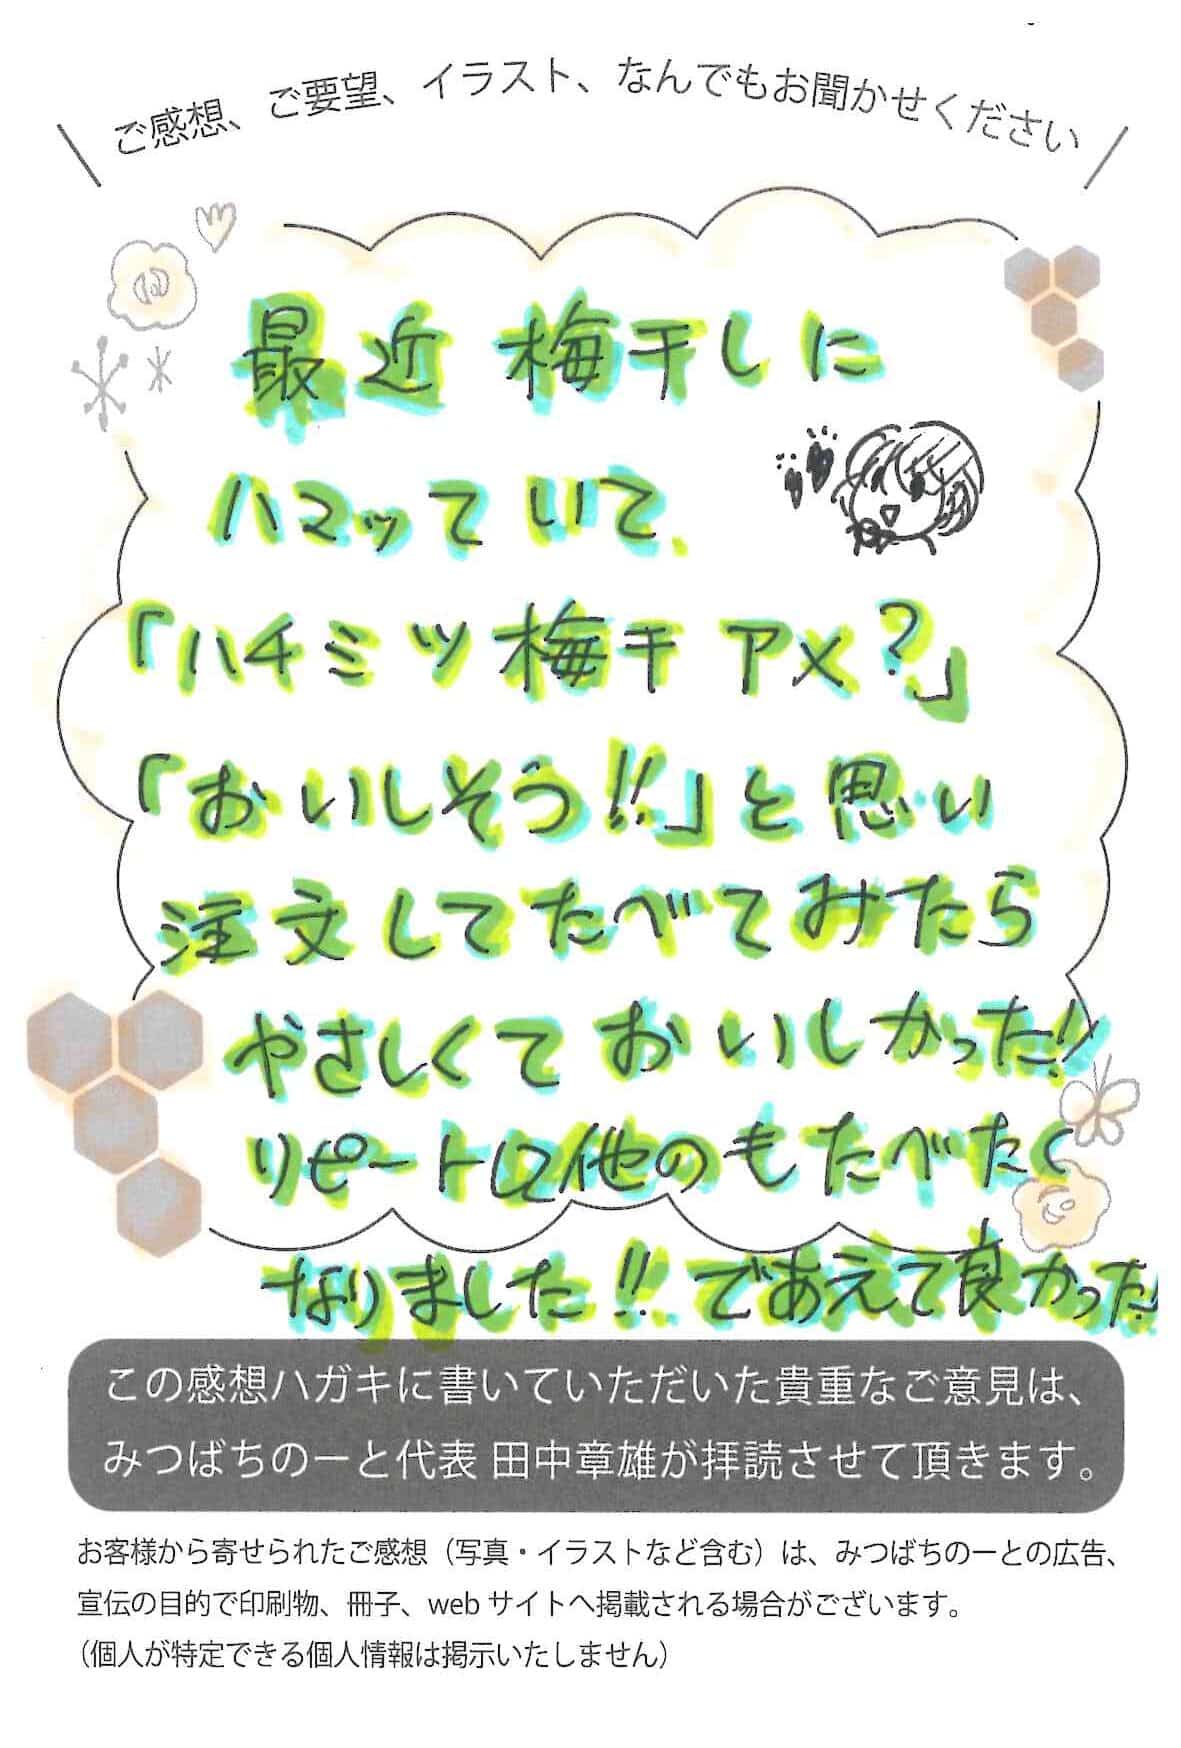 ご感想、ご要望、イラスト、なんでもお聞かせください
最近 梅干しに
ハマッていて、
「ハチミツ梅干アメ?」
「おいしそう!!」と思い
注文してたべてみたら
やさしくて おいしかった!!
リピート 他のもたべたく
なりました!! であえて良かった!
この感想ハガキに書いていただいた貴重なご意見は、
みつばちのーと代表 田中章雄が拝読させて頂きます。
お客様から寄せられたご感想（写真・イラストなど含む）は、みつばちのーとの広告、
宣伝の目的で印刷物、冊子、web サイトへ掲載される場合がございます。
（個人が特定できる個人情報は掲示いたしません）